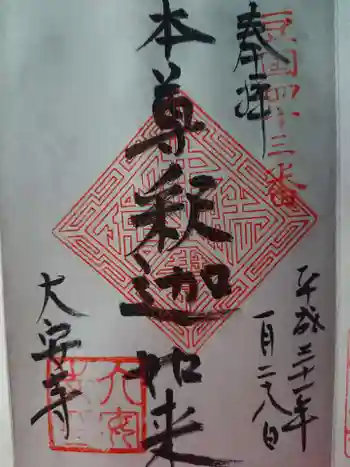 奉拝
豆国四十三番
平成三十一年
一月二八日
本尊釈迦如来
大安寺